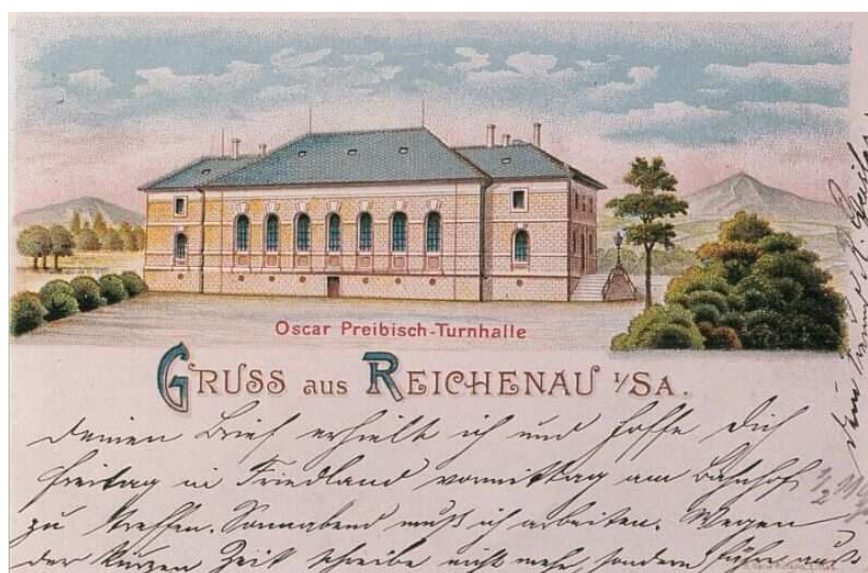 Oscar Preibisch-Turnhalle
GRUSS aus REICHENAU i/SA.
Deinen Brief erhielt ich und hoffe Dich
Freitag in Friedland vormittag am Bahnhof
zu treffen. Sonnabend muß ich arbeiten. Wegen
der kurzen Zeit schreibe nicht mehr, sondern
Dein Freund